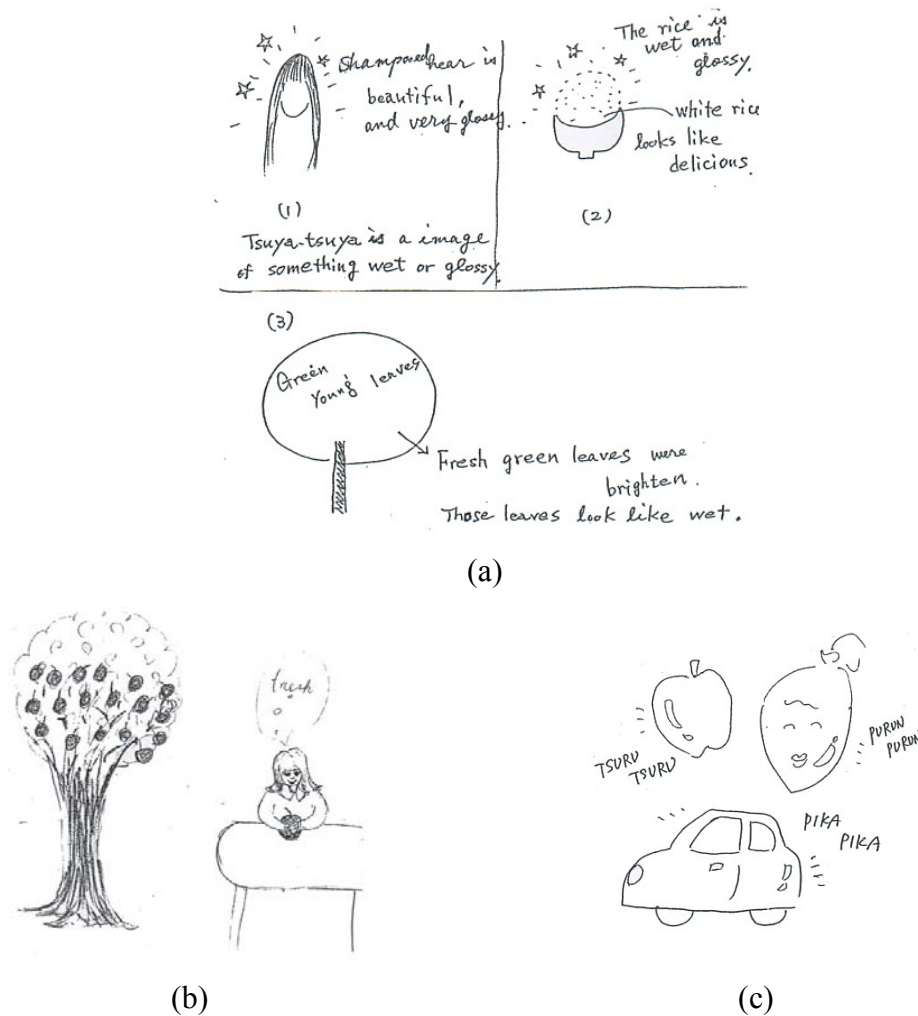 Shampooed hear is
beautiful,
and very glossy.
(1)
Tsuya-tsuya is a image
of something wet or glossy.
The rice is
wet and
glossy.
white rice
looks like
delicious.
(2)
(3)
Green
Young leaves
Fresh green leaves were
brighten.
Those leaves look like wet.
(a)
fresh
(b)
TSURU
TSURU
PURUN
PURUN
PIKA
PIKA
(c)